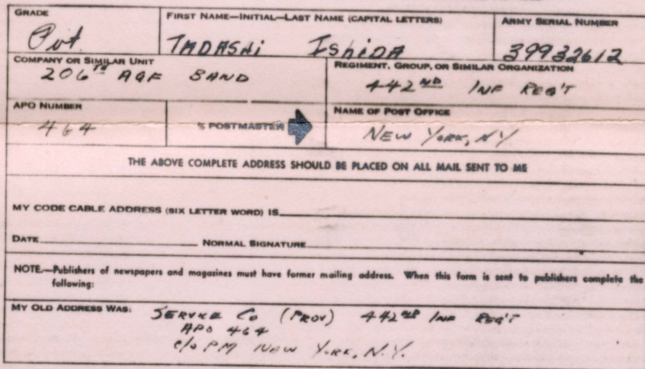 GRADE FIRST NAME—INITIAL—LAST NAME (CAPITAL LETTERS) ARMY SERIAL NUMBER
Pvt. TADASHI ISHIDA 39932612
COMPANY OR SIMILAR UNIT REGIMENT, GROUP, OR SIMILAR ORGANIZATION
206TH AGF BAND 442ND INF REG'T
APO NUMBER % POSTMASTER NAME OF POST OFFICE
464 NEW YORK, NY
THE ABOVE COMPLETE ADDRESS SHOULD BE PLACED ON ALL MAIL SENT TO ME
MY CODE CABLE ADDRESS (SIX LETTER WORD) IS
DATE NORMAL SIGNATURE
NOTE.—Publishers of newspapers and magazines must have former mailing address. When this form is sent to publishers complete the
following:
MY OLD ADDRESS WAS: SERVICE CO (PROV) 442ND INF REG'T
APO 464
c/o PM NEW YORK, N.Y.